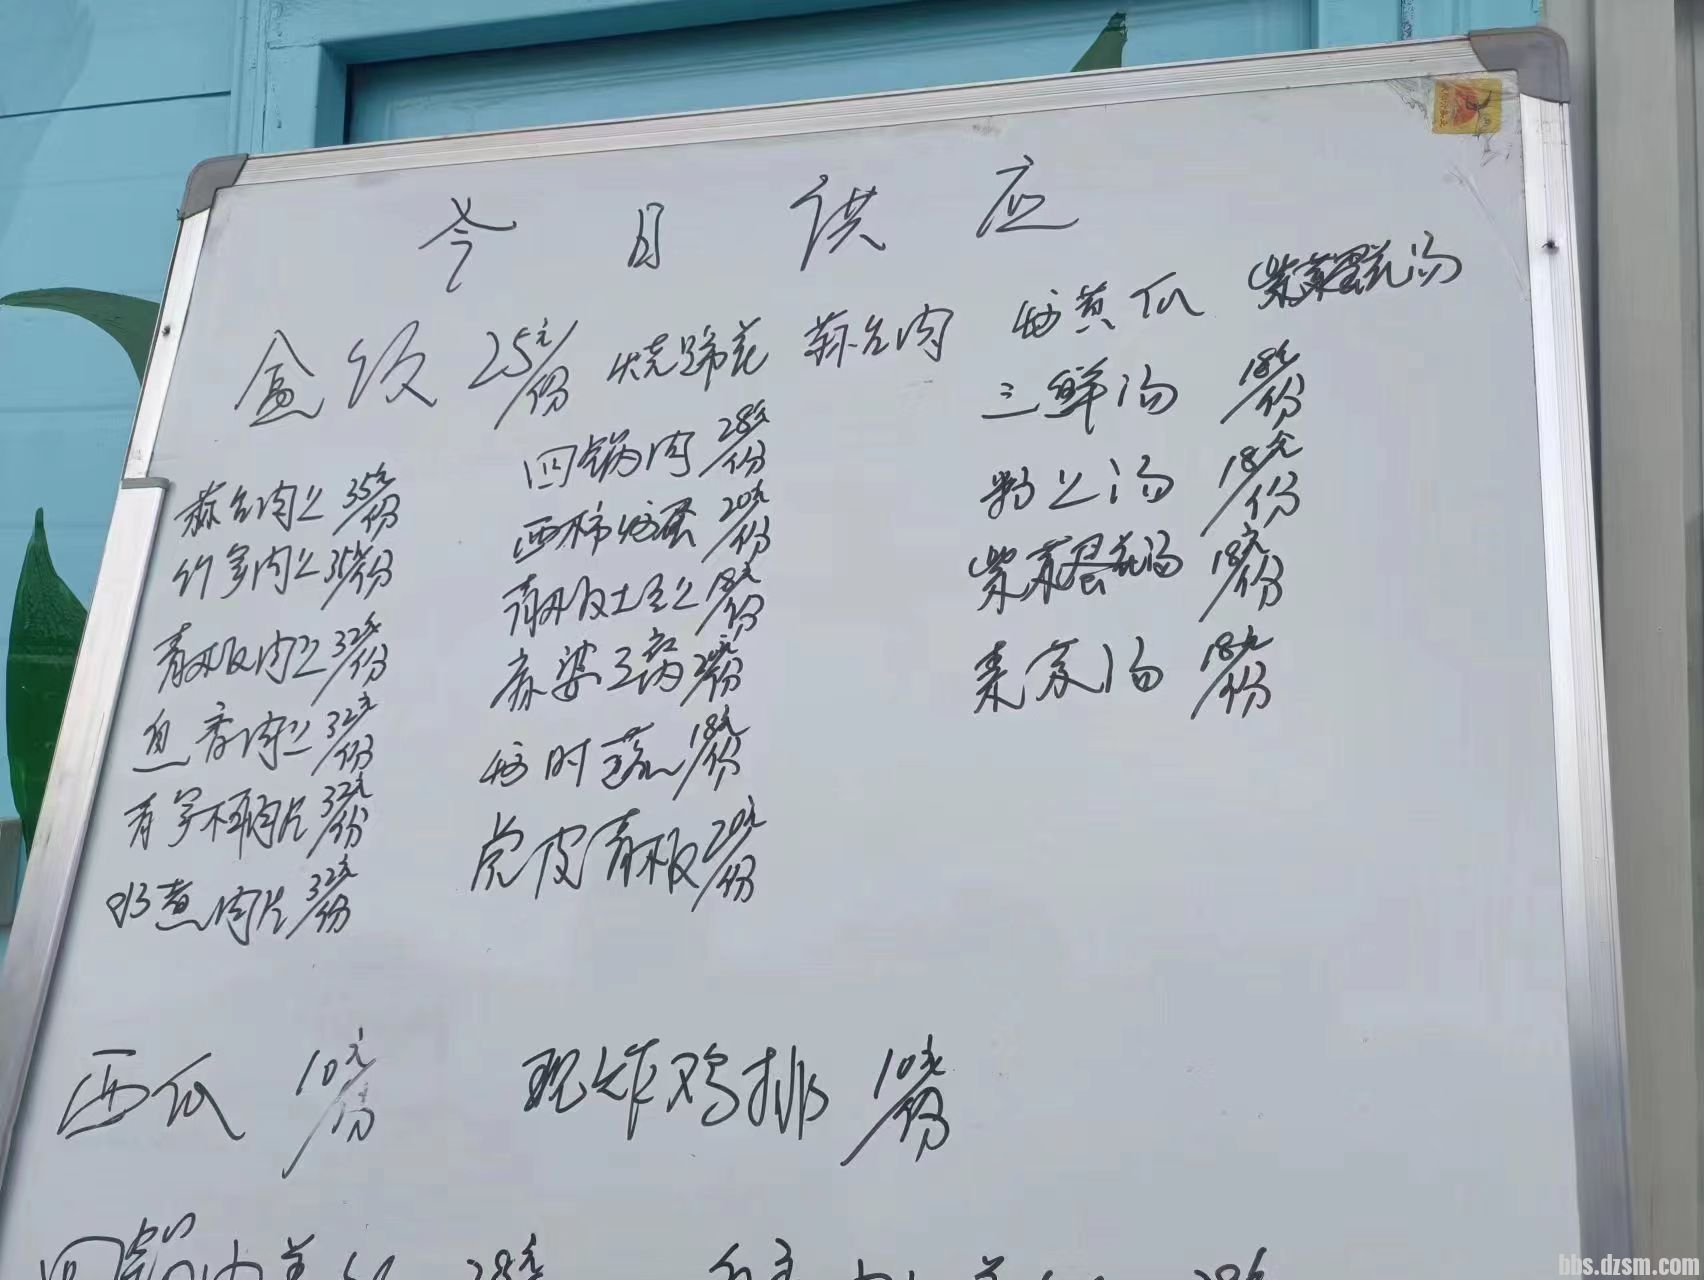 今日供应
盒饭 25元/份 烧蹄花 蒜台肉 炒黄瓜 紫菜蛋花汤
蒜台肉丝 35元/份
竹笋肉丝 35元/份
青椒肉丝 32元/份
鱼香肉丝 32元/份
青笋木耳肉片 32元/份
水煮肉片 32元/份
回锅肉 28元/份
西柿炒蛋 20元/份
青椒土豆丝 18元/份
麻婆豆腐 20元/份
炒时蔬 18元/份
虎皮青椒 20元/份
三鲜汤 18元/份
粉丝汤 18元/份
紫菜蛋花汤 18元/份
素菜汤 18元/份
西瓜 10元/份
现炸鸡排 10元/份
回锅肉盖 28元
bbs.dzsm.com